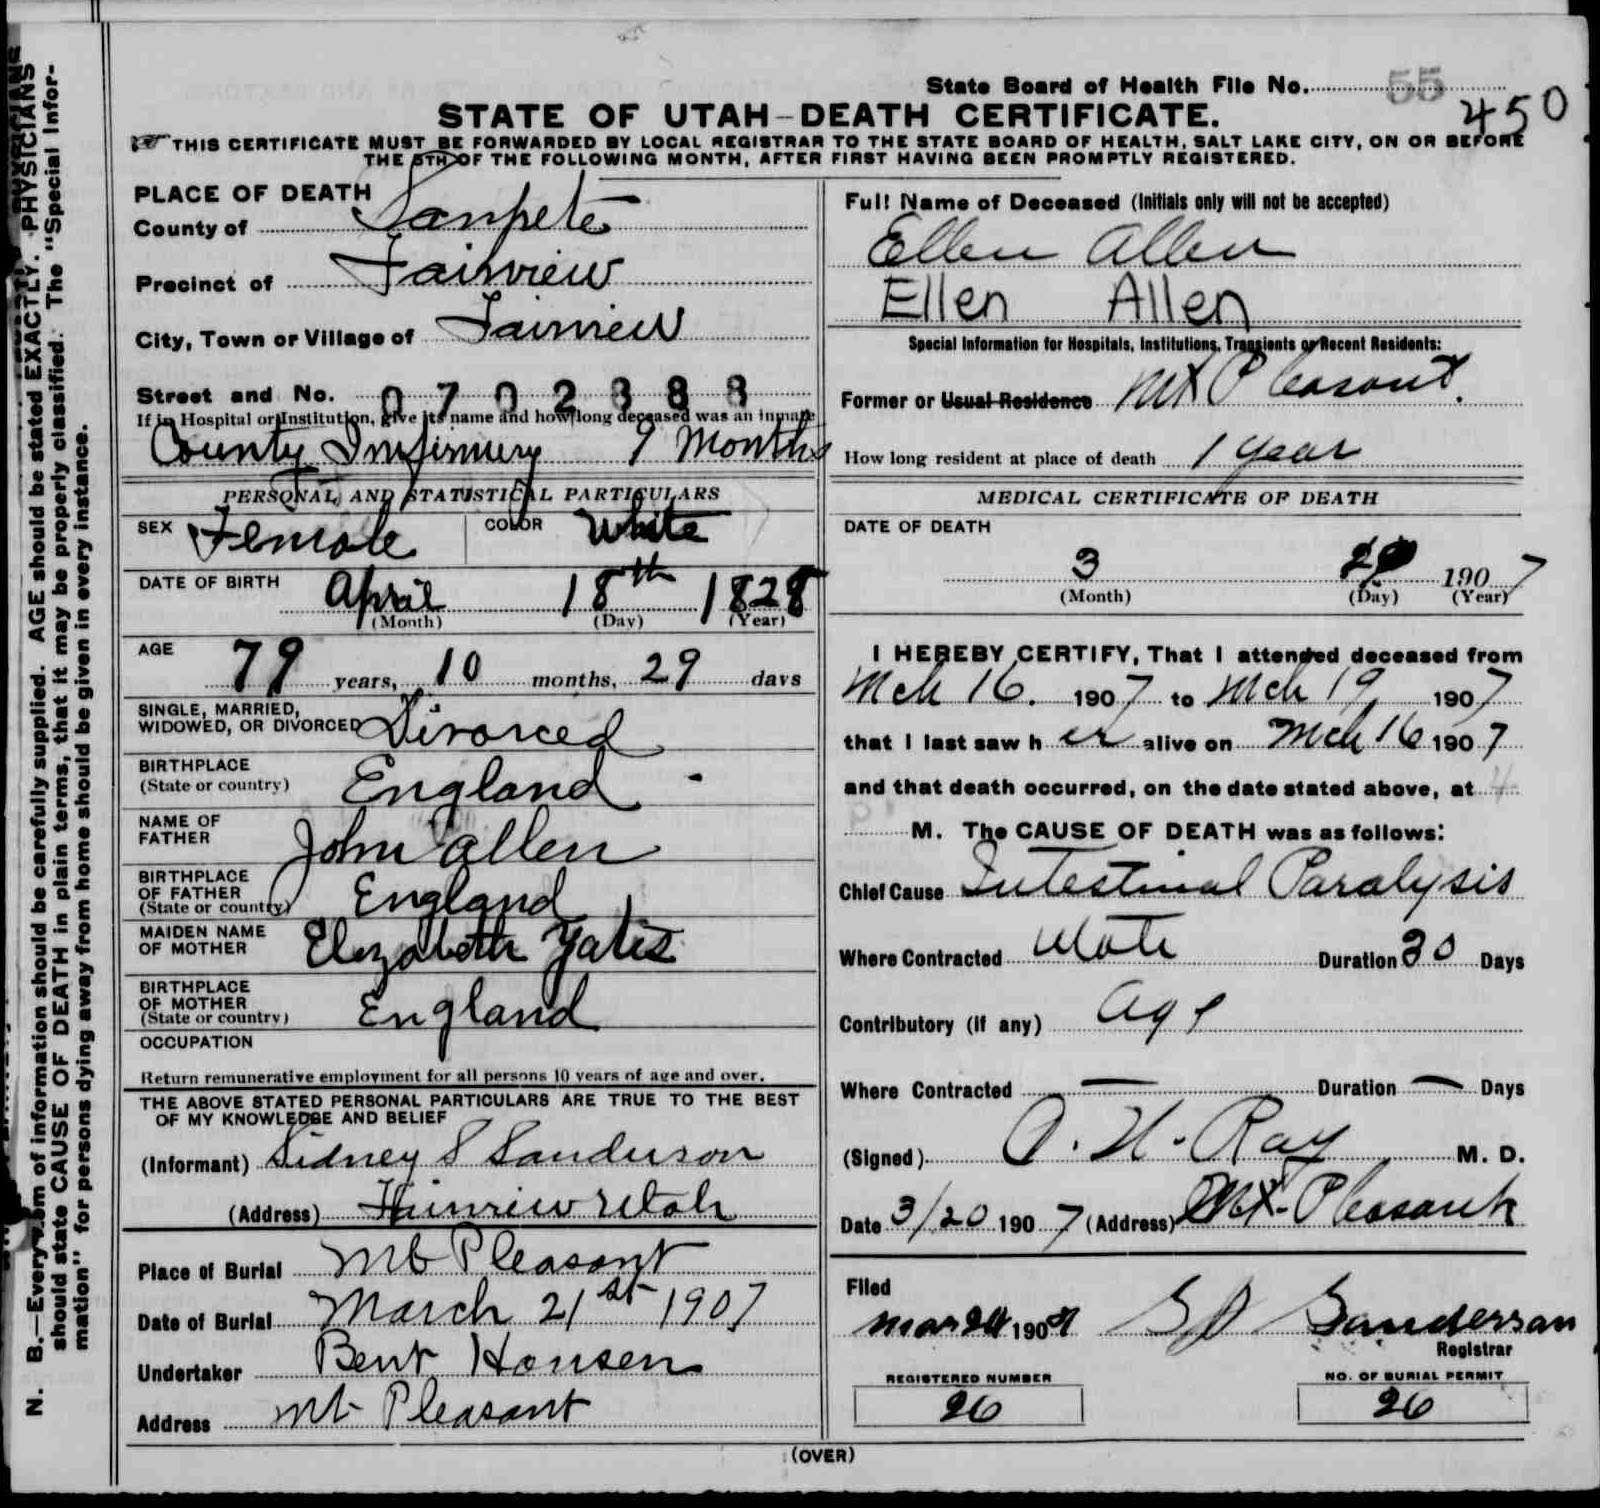 State Board of Health File No. 55
450
STATE OF UTAH-DEATH CERTIFICATE.
THIS CERTIFICATE MUST BE FORWARDED BY LOCAL REGISTRAR TO THE STATE BOARD OF HEALTH, SALT LAKE CITY, ON OR BEFORE
THE 5TH OF THE FOLLOWING MONTH, AFTER FIRST HAVING BEEN PROMPTLY REGISTERED.
N. B.—Every item of information should be carefully supplied. AGE should be stated EXACTLY. PHYSICIANS
should state CAUSE OF DEATH in plain terms, that it may be properly classified. The "Special Infor-
mation" for persons dying away from home should be given in every instance.
PLACE OF DEATH
County of Sanpete
Precinct of Fairview
City, Town or Village of Fairview
Street and No. 0702388
If in Hospital or Institution, give its name and how long deceased was an inmate
County Infirmery 9 Months
PERSONAL AND STATISTICAL PARTICULARS
SEX Female COLOR White
DATE OF BIRTH April 18th 1828
(Month) (Day) (Year)
AGE 79 years, 10 months, 29 days
SINGLE, MARRIED,
WIDOWED, OR DIVORCED Divorced
BIRTHPLACE
(State or country) England
NAME OF
FATHER John Allen
BIRTHPLACE
OF FATHER
(State or country) England
MAIDEN NAME
OF MOTHER Elizabeth Yates
BIRTHPLACE
OF MOTHER
(State or country) England
OCCUPATION
Return remunerative employment for all persons 10 years of age and over.
THE ABOVE STATED PERSONAL PARTICULARS ARE TRUE TO THE BEST
OF MY KNOWLEDGE AND BELIEF
(Informant) Sidney S Sanderson
(Address) Fairview Utah
Place of Burial Mt Pleasant
Date of Burial March 21st 1907
Undertaker Bent Hansen
Address Mt Pleasant
Full Name of Deceased (Initials only will not be accepted)
Ellen Allen
Ellen Allen
Special Information for Hospitals, Institutions, Transients or Recent Residents:
Former or Usual Residence Mt Pleasant.
How long resident at place of death 1 year
MEDICAL CERTIFICATE OF DEATH
DATE OF DEATH
3 1907
(Month) (Day) (Year)
I HEREBY CERTIFY, That I attended deceased from
Mch 16. 1907 to Mch 19 1907
that I last saw her alive on Mch 16 1907
and that death occurred, on the date stated above, at 4
M. The CAUSE OF DEATH was as follows:
Chief Cause Intestinal Paralysis
Where Contracted Utah Duration 30 Days
Contributory (if any) Age
Where Contracted — Duration — Days
(Signed) O. H. Ray M. D.
Date 3/20 1907 (Address) Mt. Pleasant
Filed
Mar 1907 S S Sanderson
Registrar
REGISTERED NUMBER
26
NO. OF BURIAL PERMIT
26
(OVER)